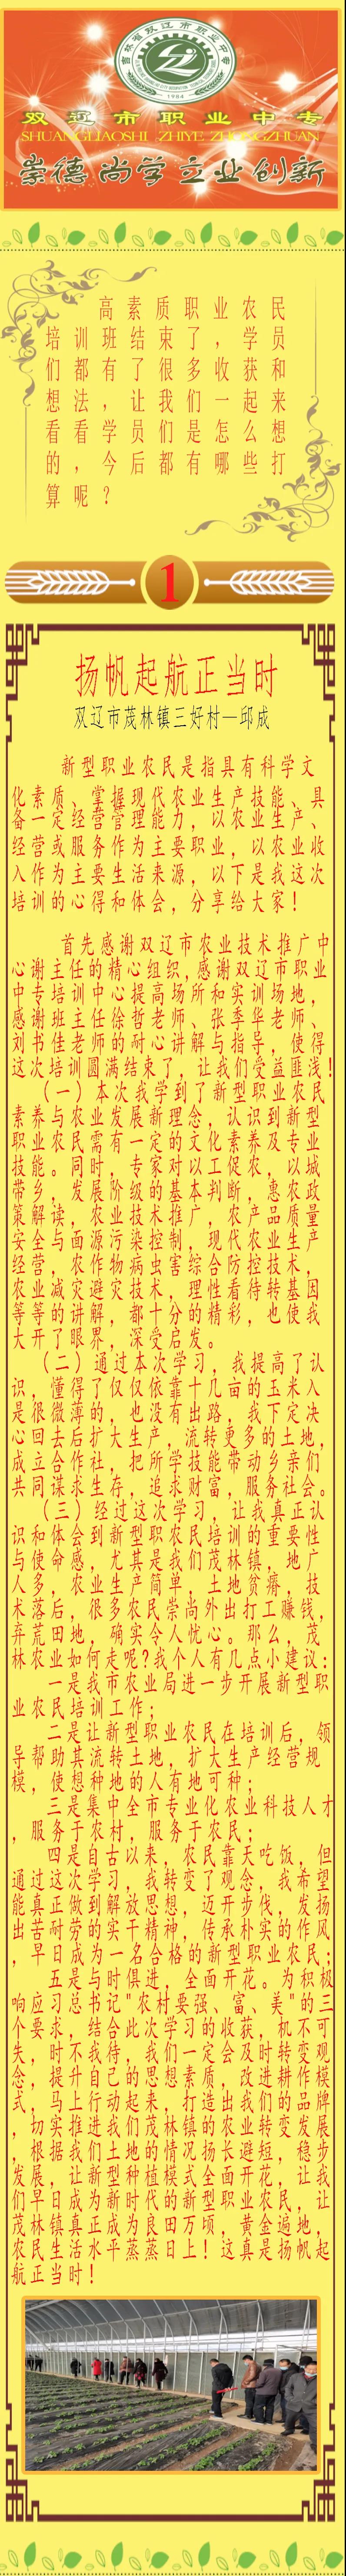 吉林省双辽市职业中专
1984
双辽市职业中专
SHUANGLIAOSHI ZHIYE ZHONGZHUAN
崇德 尚学 立业 创新
高素质职业农民
培训班结束了，学员
们都有了很多收获和
想法，让我们一起来
看看学员们是怎么想
的，今后都有哪些打
算呢？
1
扬帆起航正当时
双辽市茂林镇三好村—邱成
新型职业农民是指具有科学文
化素质、掌握现代农业生产技能、具
备一定经营管理能力，以农业生产、
经营或服务作为主要职业，以农业收
入作为主要生活来源，以下是我这次
培训的心得和体会，分享给大家！
首先感谢双辽市农业技术推广中
心谢主任的精心组织,感谢双辽市职业
中专培训中心提高场所和实训场地，
感谢班主任徐哲老师、张季华老师、
刘书佳老师的耐心讲解与指导，使得
这次培训圆满结束了，让我们受益匪浅！
（一）本次我学到了新型职业农民
素养与农业发展新理念，认识到新型
职业农民需有一定的文化素养及专业
技能。同时，专家对以工促农，以城
带乡，发展阶级的基本判断，惠农政
策解读，农业技术推广，农产品质量
安全与面源污染控制，现代农业生产
经营，农作物病虫害综合防控技术，
农业减灾避灾技术，理性看待转基因
等等的讲解，都十分的精彩，也使我
大开了眼界，深受启发。
（二）通过本次学习，我提高了认
识，懂得了仅仅依靠十几亩的玉米入
是很微薄的，也没有出路，我下定决
心回去后扩大生产，流转更多的土地，
成立合作社，把所学技能带动乡亲们
共同谋求生存，追求财富，服务社会。
（三）经过这次学习，让我真正认
识和体会到新型职农民培训的重要性
与使命感，尤其是我们茂林镇，地广
人多，农业生产简单，土地贫瘠，技
术落后，很多农民崇尚外出打工赚钱，
弃荒田地，确实令人忧心。那么，茂
林农业如何走呢?我个人有几点小建议：
一是我市农业局进一步开展新型职
业农民培训工作；
二是让新型职业农民在培训后，领
导帮助其流转土地，扩大生产经营规
模，使想种地的人有地可种；
三是集中全市专业化农业科技人才
，服务于农村，服务于农民；
四是自古以来，农民靠天吃饭，但
通过这次学习，我转变了观念，我希望
能真正做到解放思想，迈开步伐，发扬
出苦耐劳的实干精神，传承朴实的作风
，早日成为一名合格的新型职业农民；
五是与时俱进，全面开花。为积极
响应习总书记"农村要强、富、美"的三
个要求，结合此次学习的收获，机不可
失，时不我待，我们一定会及时转变观
念，提升自己的思想素质，改进耕作模
式，马上行动起来，打造出我们的品牌
，切实推进我们茂林镇的农业转变发展
，根据我们土地的情况扬长避短，稳步
发展，让新型种植模式全面开花，让我
们早日成为新时代的新型职业农民，让
茂林镇真正成为良田万顷，黄金遍地，
农民生活水平蒸蒸日上！这真是扬帆起
航正当时！